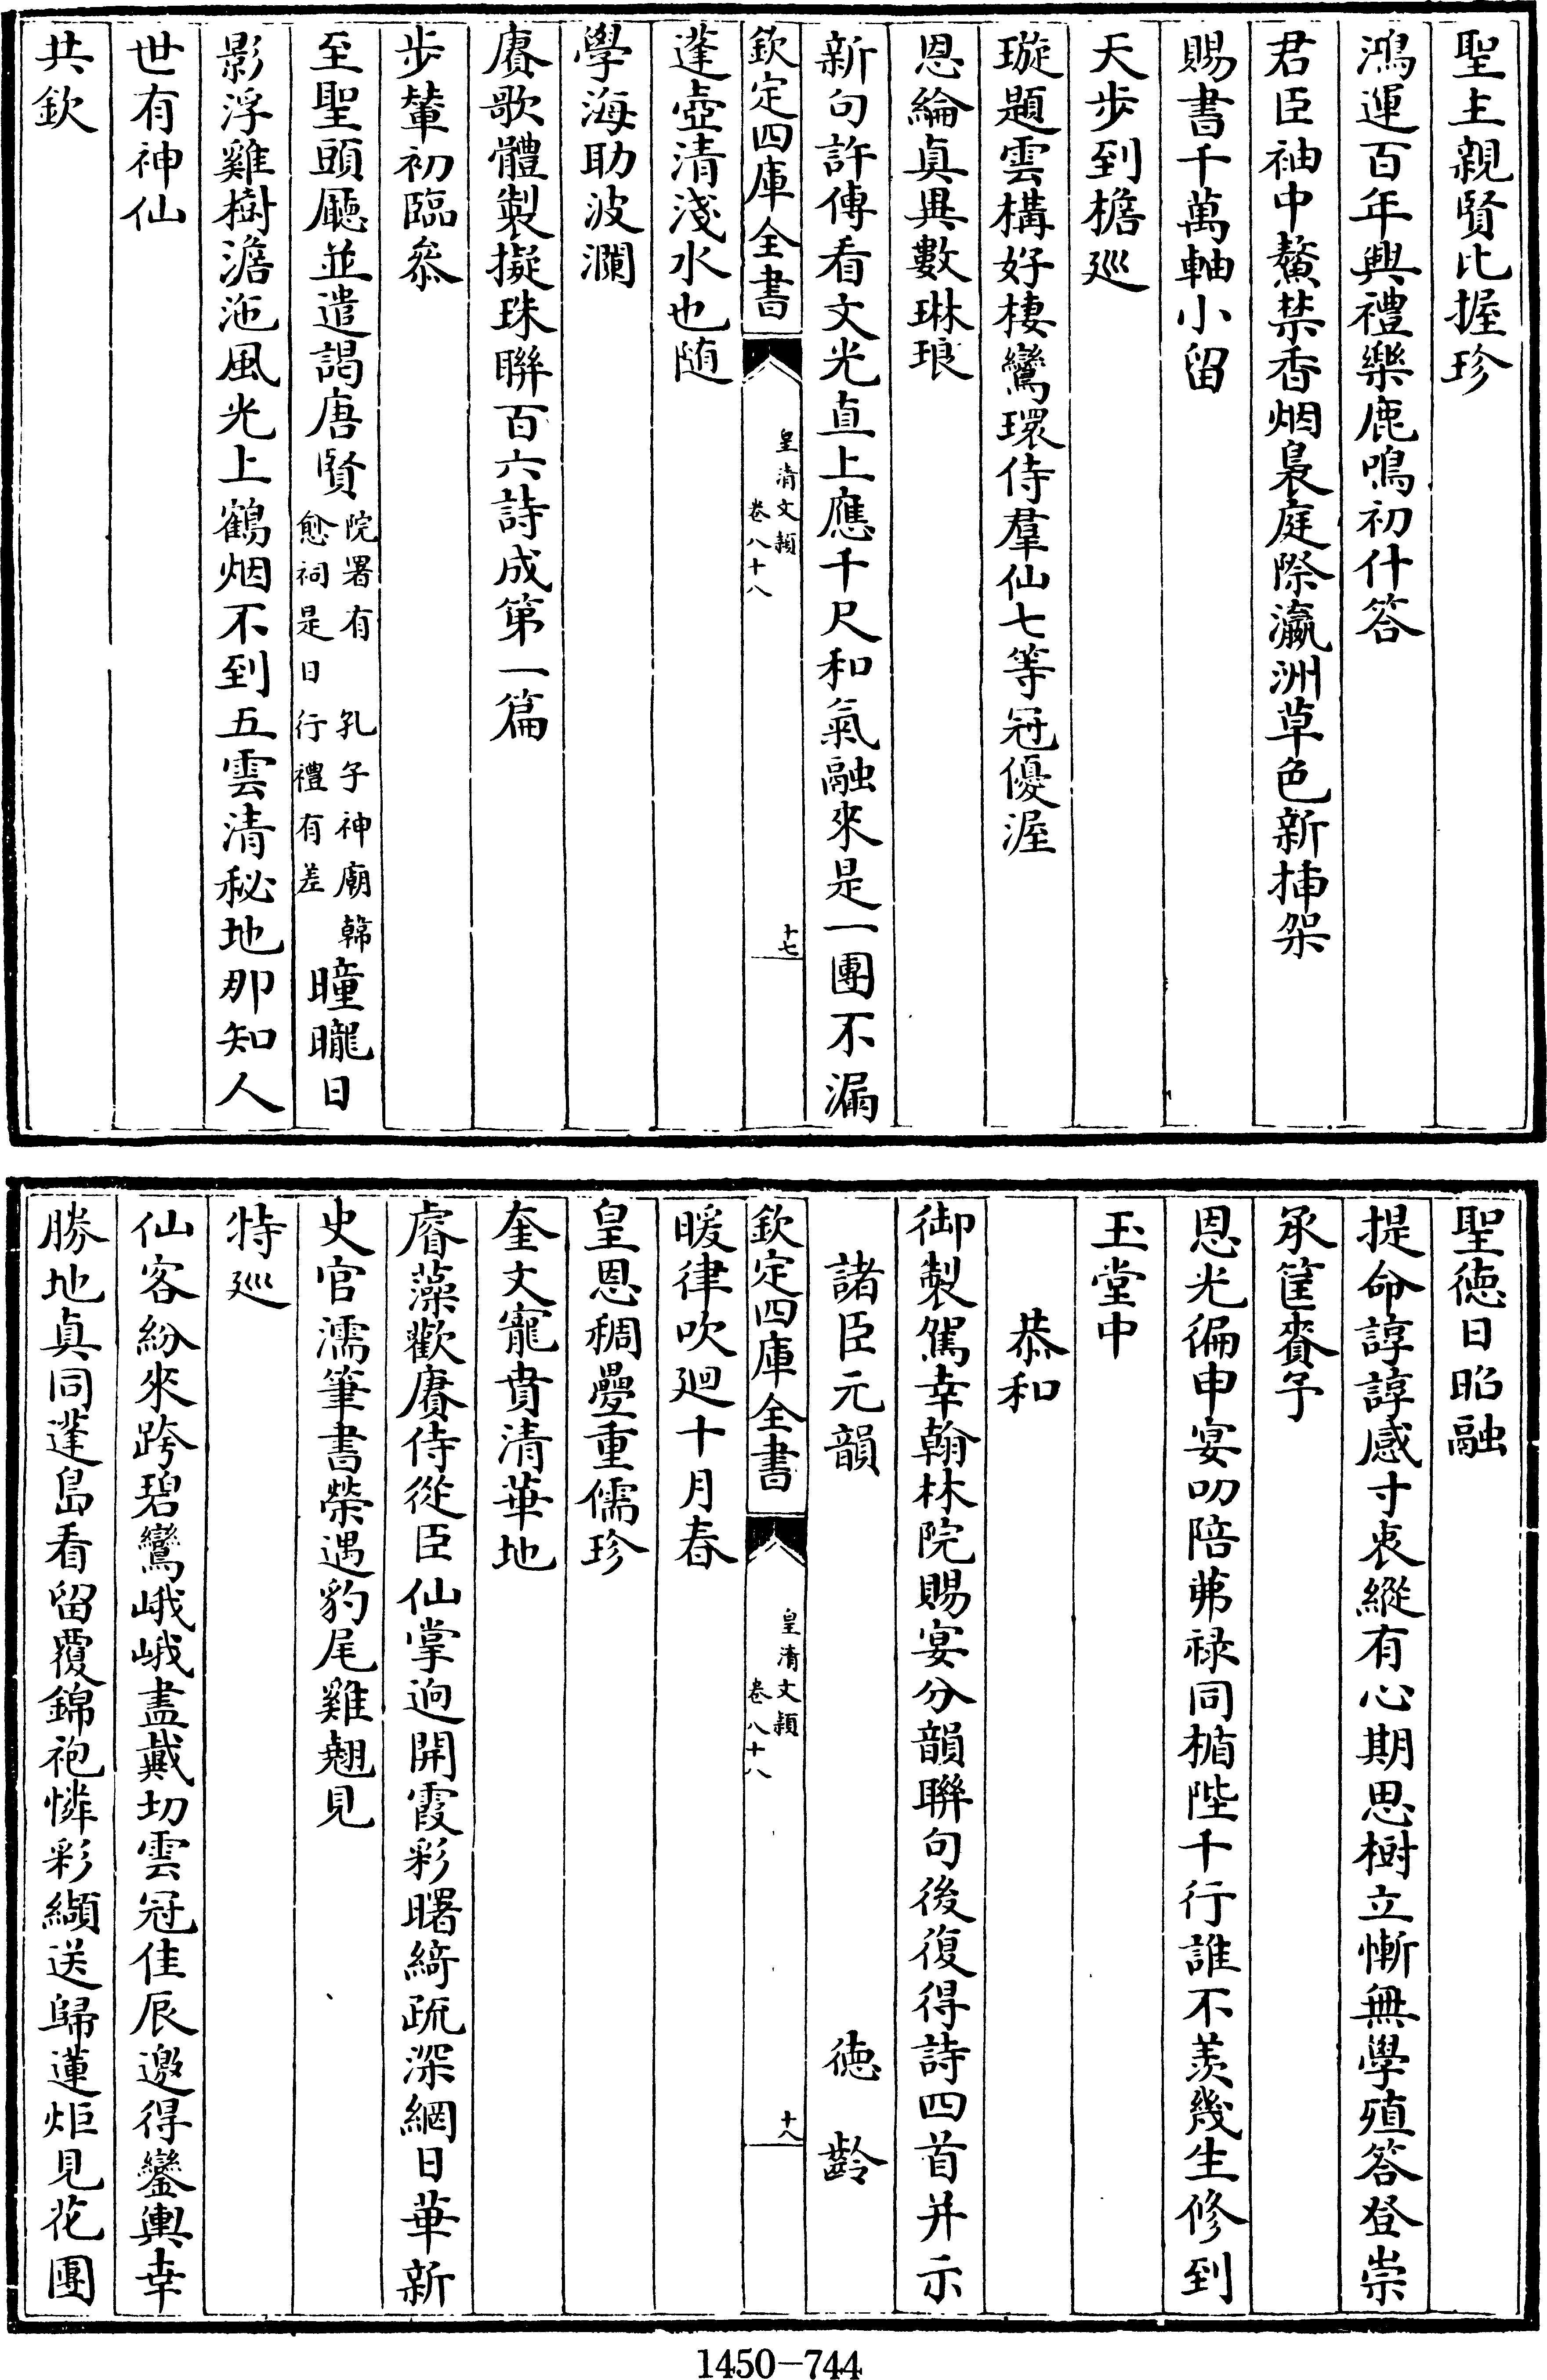 聖主親賢比握珍
鴻運百年興禮樂鹿鳴初什答
君臣袖中鰲禁香烟裊庭際瀛洲草色新揷架
賜書千萬軸小留
天步到檐巡
璇題雲構好棲鸞環侍羣仙七等冠優渥
恩綸真異數琳琅
新句許傳看文光直上應千尺和氣融來是一團不漏
欽定四庫全書
皇清文穎
卷八十八
十七
蓬壺清淺水也随
學海助波瀾
賡歌體製擬珠聯百六詩成第一篇
步輦初臨叅
至聖頭廳並遣謁唐賢
院署有　孔子神廟韓
愈祠是日　行禮有差
曈曨日
影浮雞樹澹沲風光上鶴烟不到五雲清秘地那知人
世有神仙
共欽
聖徳日昭融
提命諄諄感寸衷縱有心期思樹立慚無學殖答登崇
承筐賚予
恩光徧申宴叨陪弗禄同楯陛千行誰不羡幾生修到
玉堂中
恭和
御製駕幸翰林院賜宴分韻聯句後復得詩四首并示
諸臣元韻　徳齡
欽定四庫全書
皇清文穎
卷八十八
十八
暖律吹廻十月春
皇恩稠疊重儒珍
奎文寵賁清華地
睿藻歡賡侍從臣仙掌逈開霞彩曙綺疏深網日華新
史官濡筆書榮遇豹尾雞翹見
特巡
仙客紛來跨碧鸞峨峨盡戴切雲冠佳辰邀得鑾輿幸
勝地真同蓬島看留覆錦袍憐彩纈送歸蓮炬見花團
1450-744